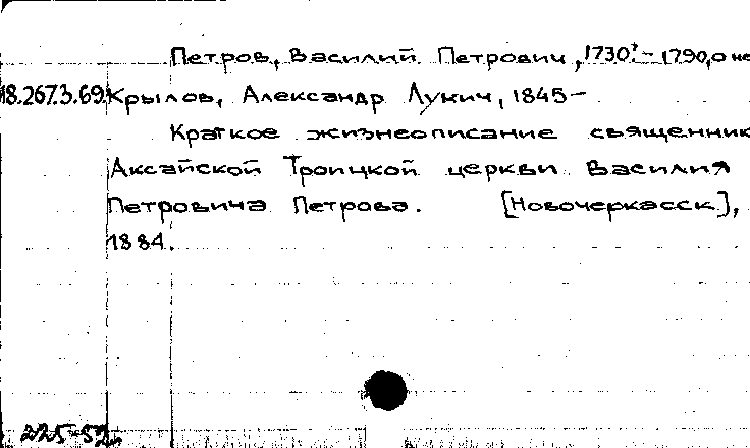 Петров, Василий Петрович, 1730?-1790, о не
18.267.3.69. Крылов, Александр Лукич, 1845-
Краткое жизнеописание священник
Аксайской Троицкой церкви Василия
Петровича Петрова. [Новочеркасск],
1884.